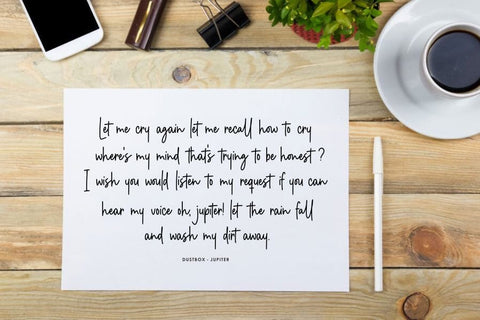 Let me cry again let me recall how to cry
where's my mind that's trying to be honest ?
I wish you would listen to my request if you can
hear my voice oh, jupiter! let the rain fall
and wash my dirt away.
DUSTBOX - JUPITER